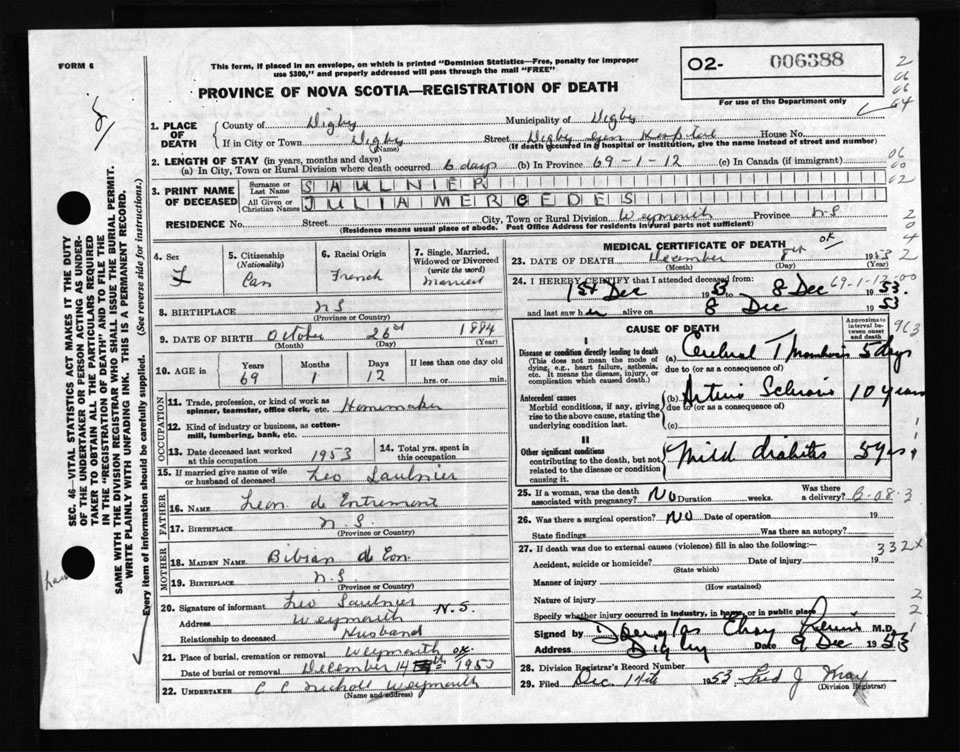 FORM 6
This form, if placed in an envelope, on which is printed "Dominion Statistics—Free, penalty for improper
use $300," and properly addressed will pass through the mail "FREE"
O2- 006388
For use of the Department only
PROVINCE OF NOVA SCOTIA—REGISTRATION OF DEATH
1. PLACE OF DEATH
County of Digby Municipality of Digby
If in City or Town Digby Street Digby Gen Hospital House No.
(Name) (If death occurred in a hospital or institution, give the name instead of street and number)
2. LENGTH OF STAY (in years, months and days)
(a) In City, Town or Rural Division where death occurred 6 days (b) In Province 69-1-12 (c) In Canada (if immigrant)
3. PRINT NAME OF DECEASED
Surname or Last Name SAULNIER
All Given or Christian Names JULIA MERCEDES
RESIDENCE No. Street City, Town or Rural Division Weymouth Province N.S
(Residence means usual place of abode. Post Office Address for residents in rural parts not sufficient)
4. Sex F
5. Citizenship (Nationality) Can
6. Racial Origin French
7. Single, Married, Widowed or Divorced (write the word) Married
8. BIRTHPLACE N S
(Province or Country)
9. DATE OF BIRTH October 26 1884
(Month) (Day) (Year)
10. AGE in Years 69 Months 1 Days 12 If less than one day old hrs. or min.
OCCUPATION
11. Trade, profession, or kind of work as spinner, teamster, office clerk, etc. Homemaker
12. Kind of industry or business, as cotton-mill, lumbering, bank, etc.
13. Date deceased last worked at this occupation 1953
14. Total yrs. spent in this occupation
15. If married give name of wife or husband of deceased Leo Saulnier
FATHER
16. NAME Leon de Entremont
17. BIRTHPLACE N.S.
(Province or Country)
MOTHER
18. MAIDEN NAME Bibian de Eon.
19. BIRTHPLACE N.S.
(Province or Country)
20. Signature of informant Leo Saulnier
Address Weymouth N.S.
Relationship to deceased Husband
21. Place of burial, cremation or removal Weymouth
Date of burial or removal December 14th 1953
22. UNDERTAKER C C Nicholl Weymouth
(Name and address)
MEDICAL CERTIFICATE OF DEATH
23. DATE OF DEATH December 8th 1953
(Month) (Day) (Year)
ok
24. I HEREBY CERTIFY that I attended deceased from: 69-1-12
1st Dec 1953 to 8 Dec 1953.
and last saw her alive on 8 Dec 1953
CAUSE OF DEATH
Approximate interval between onset and death
I
Disease or condition directly leading to death
(This does not mean the mode of dying, e.g., heart failure, asthenia, etc. It means the disease, injury, or complication which caused death.)
(a) Cerebral Thrombosis 5 days
due to (or as a consequence of)
Antecedent causes
Morbid conditions, if any, giving rise to the above cause, stating the underlying condition last.
(b) Arterio Sclerosis 10 years
due to (or as a consequence of)
(c)
II
Other significant conditions
contributing to the death, but not related to the disease or condition causing it.
Mild diabetes 5 yrs
25. If a woman, was the death associated with pregnancy? No Duration weeks. Was there a delivery?
26. Was there a surgical operation? No Date of operation 19
State findings Was there an autopsy?
27. If death was due to external causes (violence) fill in also the following:—
Accident, suicide or homicide? Date of injury 19
(State which)
332x
Manner of injury
(How sustained)
Nature of injury
Specify whether injury occurred in industry, in home, or in public place
Signed by Douglas M.D.
Address Digby Date 9 Dec 1953
28. Division Registrar's Record Number
29. Filed Dec. 14th 1953 Fred J May
(Division Registrar)
SEC. 46—VITAL STATISTICS ACT MAKES IT THE DUTY
OF THE UNDERTAKER OR PERSON ACTING AS UNDER-
TAKER TO OBTAIN ALL THE PARTICULARS REQUIRED
IN THE "REGISTRATION OF DEATH" AND TO FILE THE
SAME WITH THE DIVISION REGISTRAR WHO SHALL ISSUE THE BURIAL PERMIT.
WRITE PLAINLY WITH UNFADING INK. THIS IS A PERMANENT RECORD.
Every item of information should be carefully supplied. (See reverse side for instructions.)